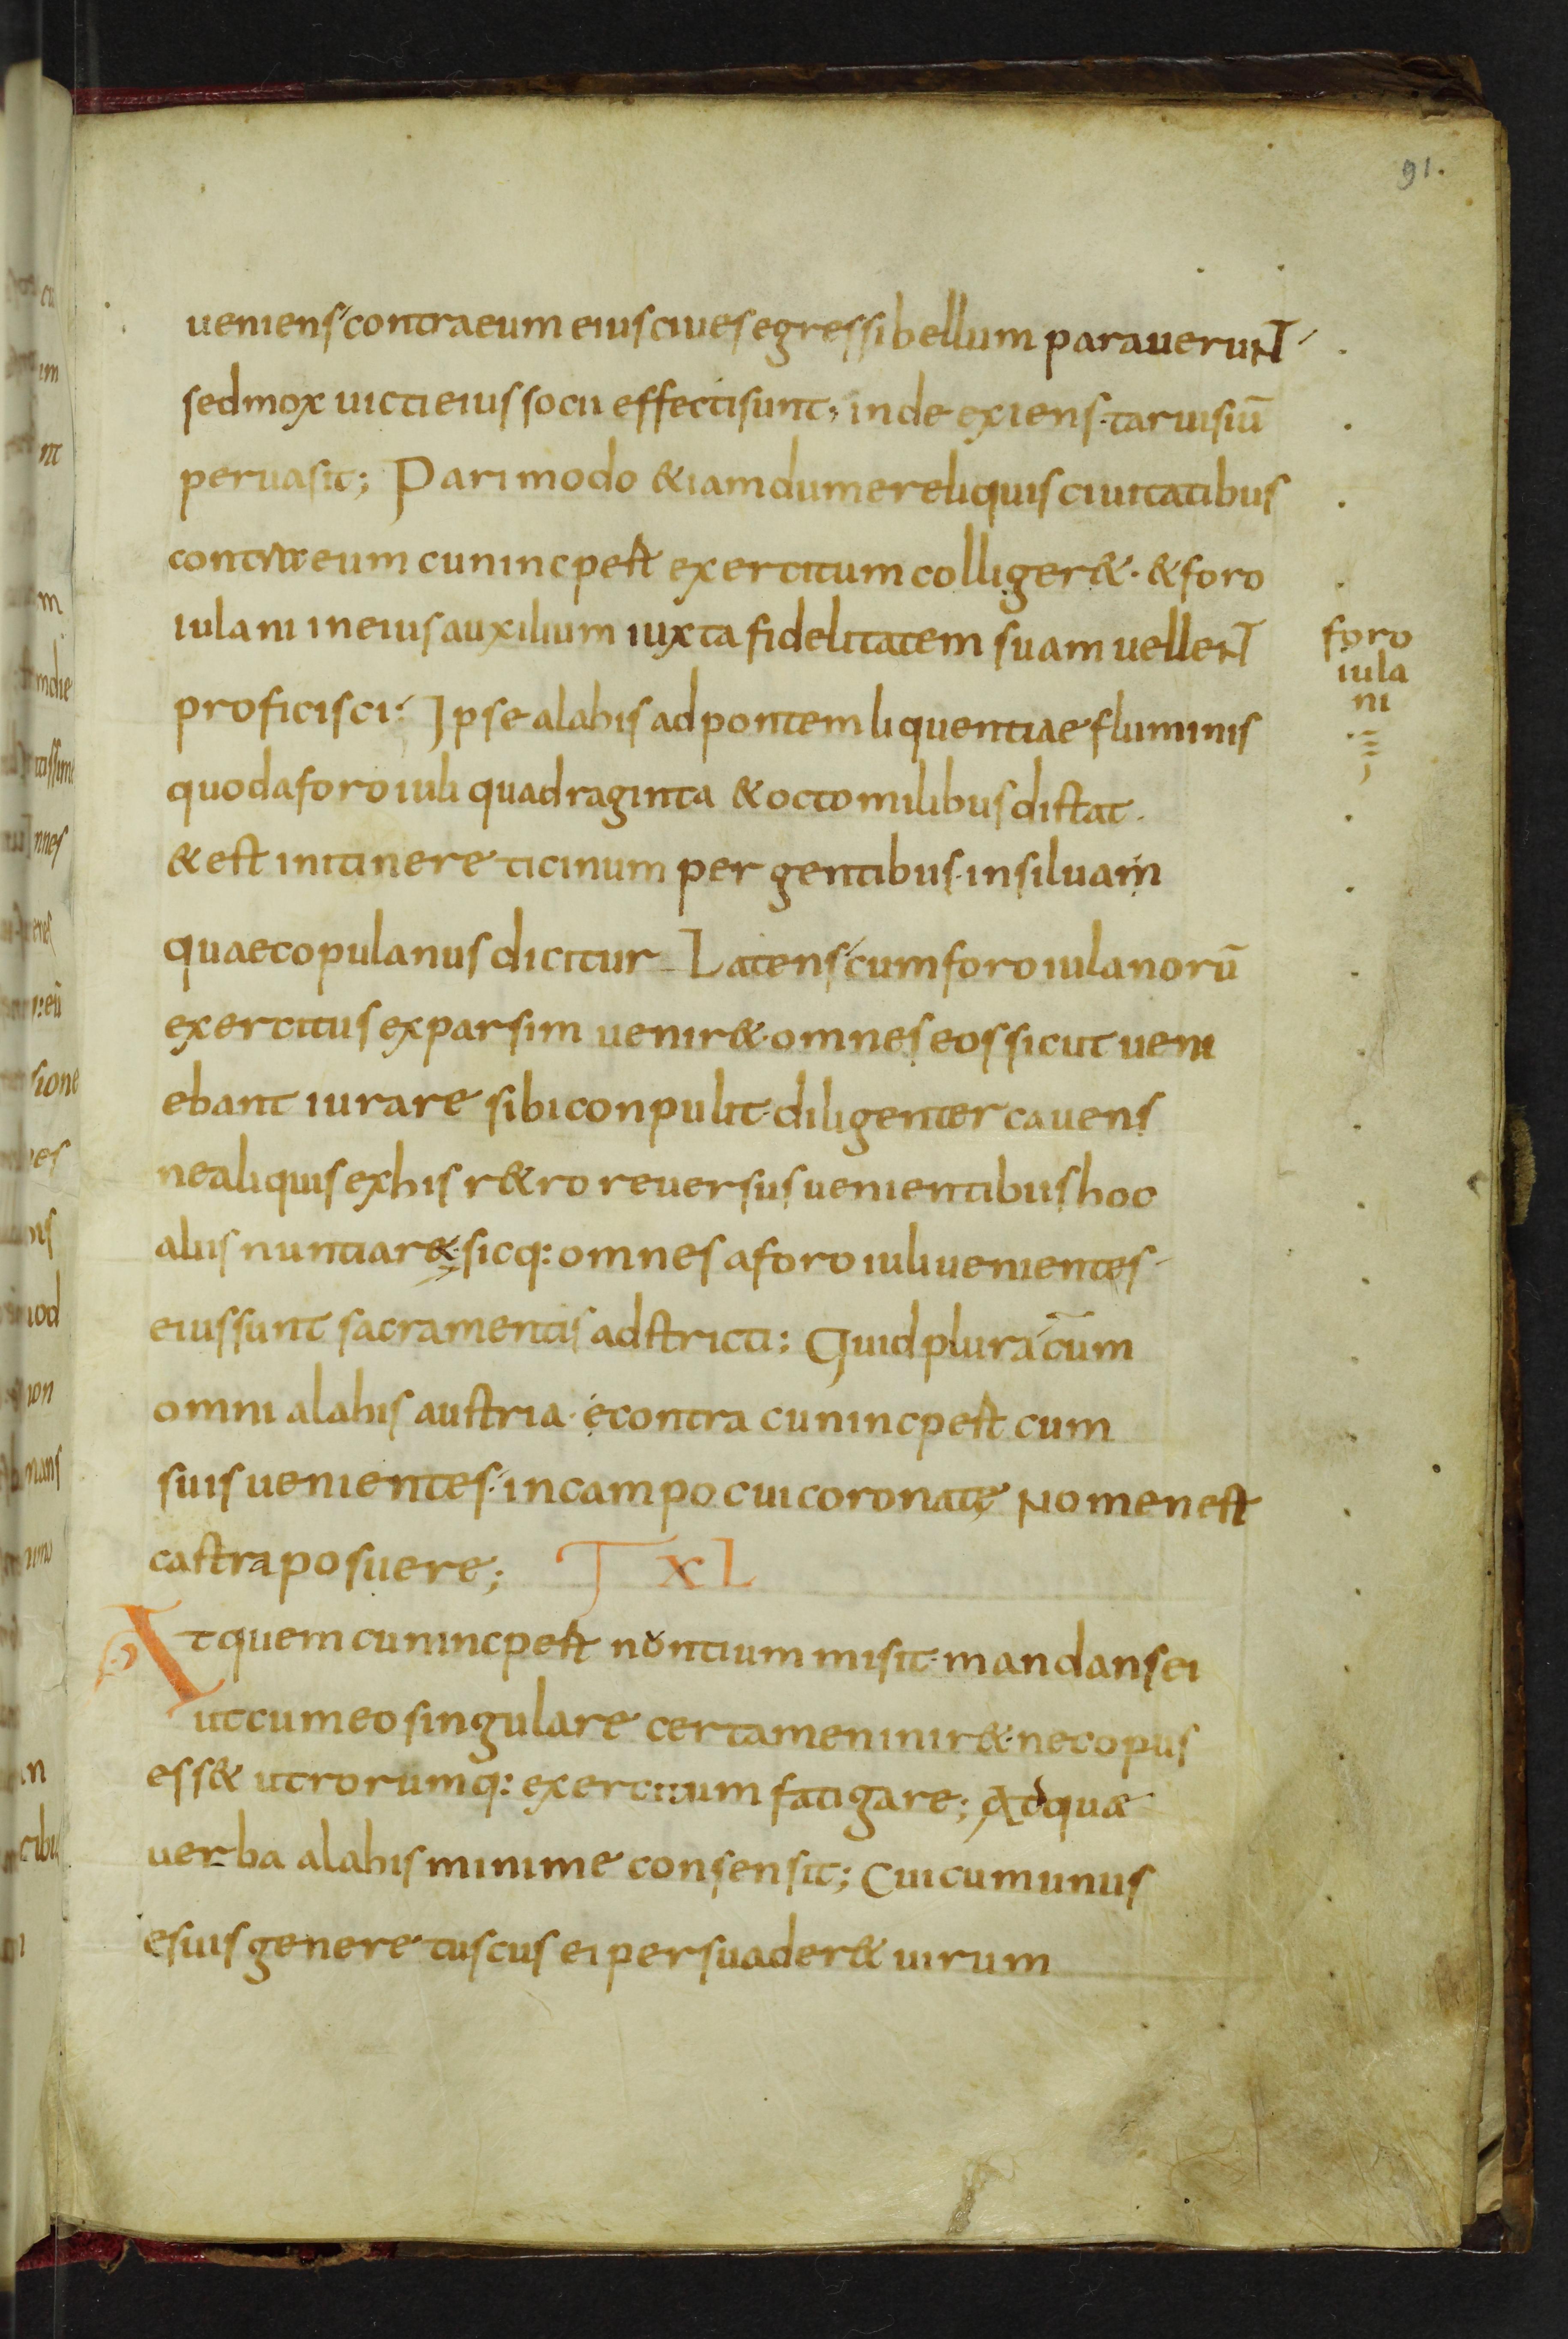 91.
ueniens contra eum eius ciues egressi bellum parauerunt
sed mox uicti eius socii effecti sunt; inde exiens. taruisiū
peruasit; Pari modo &iam dume reliquis ciuitatibus
contra eum cunincpest exercitum colliger&. & foro
iulani in eius auxilium iuxta fidelitatem suam uellent
proficisci. Ipse alahis ad pontem liquentiae fluminis
quod a foro iuli quadraginta & octo milibus distat.
& est in itinere ticinum pergentibus. in siluam
quae copulanus dicitur Latens cum foroiulanorū
exercitus ex parsim uenir&. omnes eos sicut ueni
ebant iurare sibi conpulit. diligenter cauens
ne aliquis ex his r&ro reuersus uenientibus hoc
aliis nuntiar&. sicq: omnes a foro iuli uenientes
eius sunt sacramentis adstricti; Quid plura cum
omni alahis austria. e contra cunincpest cum
suis uenientes. in campo cui coronate nomen est
castra posuere; T XL
At quem cunincpest nontium misit. mandans ei
ut cum eo singulare certamen inir&. nec opus
ess& utrorumq: exercitum fatigare; Ad quae
uerba alahis minime consensit; Cui cum unus
e suis genere tuscus ei persuader& uirum
foro
iula
ni